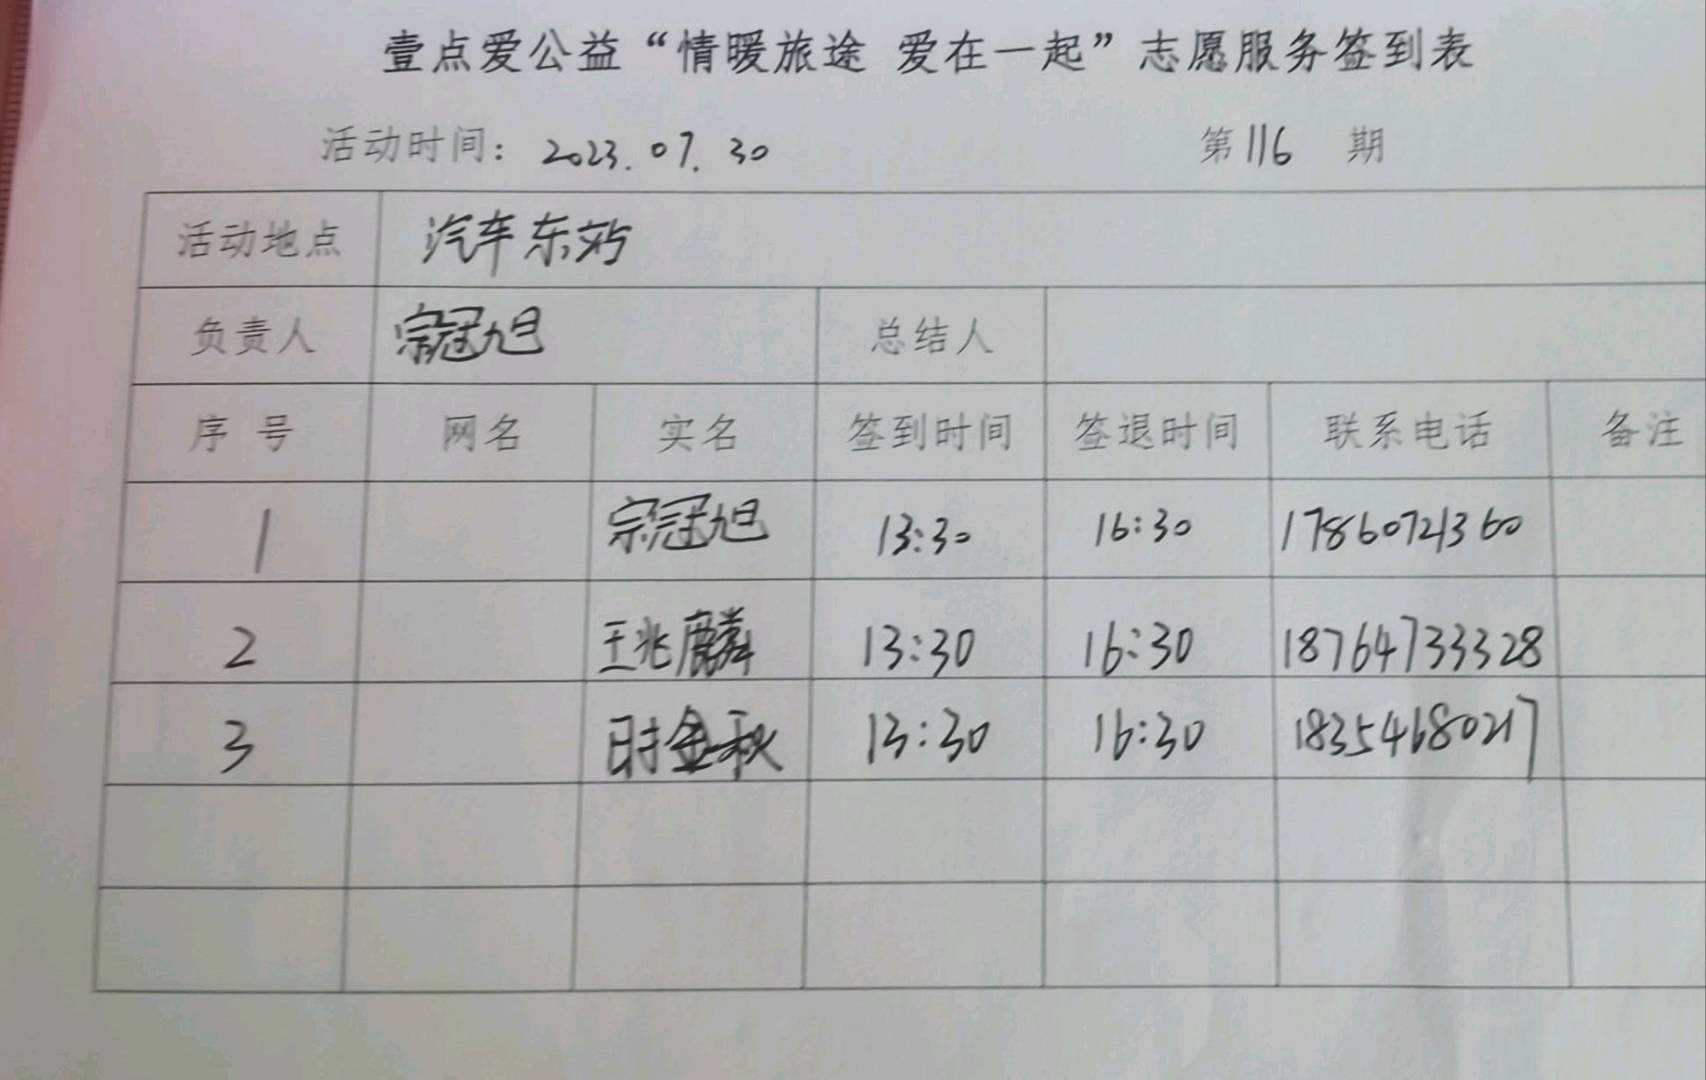 壹点爱公益“情暖旅途 爱在一起”志愿服务签到表
活动时间: 2023.07.30 第116期
活动地点 汽车东站
负责人 宗冠旭 总结人
序号 网名 实名 签到时间 签退时间 联系电话 备注
1 宗冠旭 13:30 16:30 17860721360
2 王兆麟 13:30 16:30 18764733328
3 时金秋 13:30 16:30 18354680217